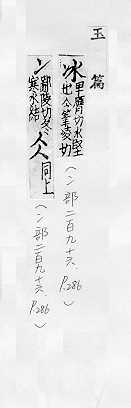 玉篇
冰卑膺切水堅
也筆凌切
(冫部二百九十六. P.286)
冫鄙陵切冬
寒水結
仌同上
(冫部二百九十六. P.286)